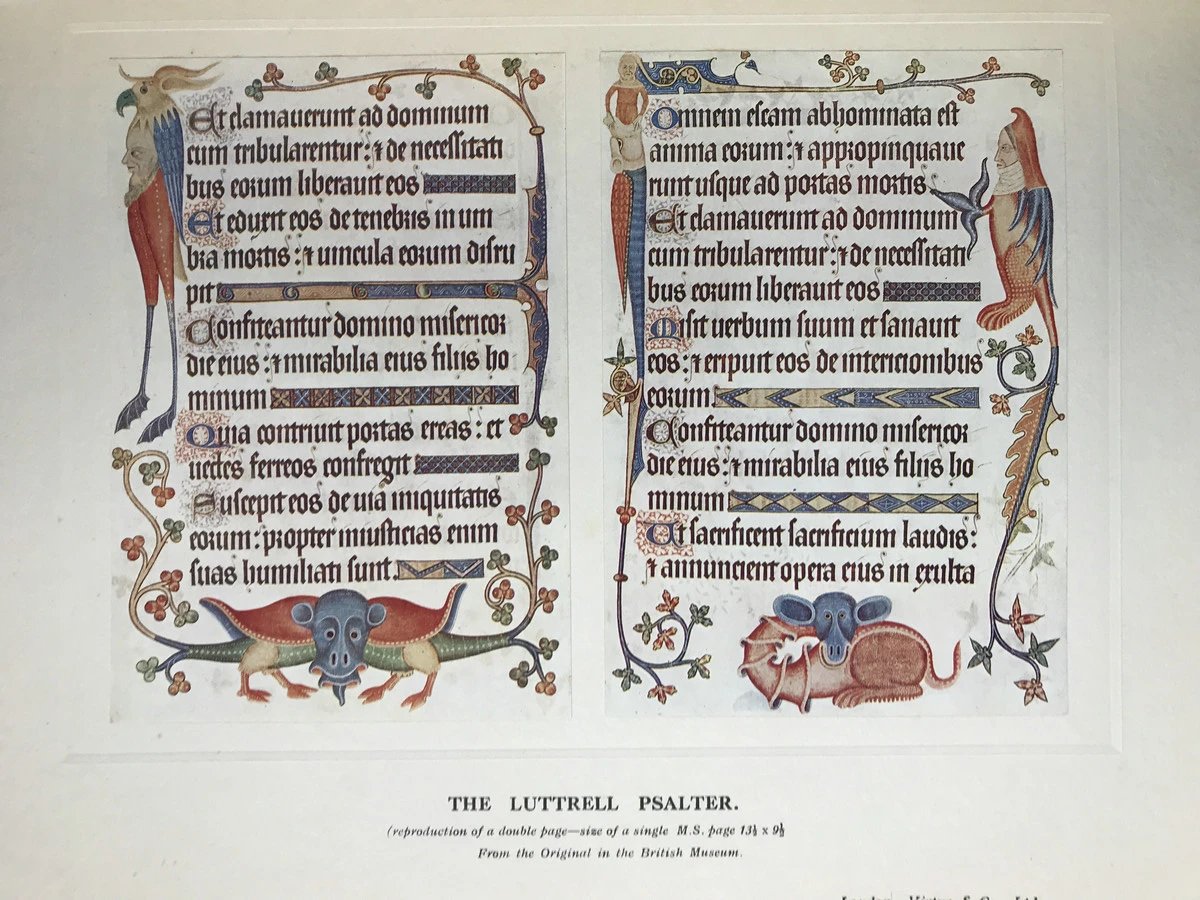 Et clamauerunt ad dominum
cum tribularentur: ⁊ de necessitati
bus eorum liberauit eos
Et eduxit eos de tenebris in um
bra mortis: ⁊ uincula eorum disru
pit
Confiteantur domino misericor
die eius: ⁊ mirabilia eius filiis ho
minum
Quia contriuit portas ereas: et
uectes ferreos confregit
Suscepit eos de uia iniquitatis
eorum: propter iniusticias enim
suas humiliati sunt.
Omnem escam abhominata est
anima eorum: ⁊ appropinquaue
runt usque ad portas mortis.
Et clamauerunt ad dominum
cum tribularentur: ⁊ de necessitati
bus eorum liberauit eos
Misit uerbum suum et sanauit
eos: ⁊ eripuit eos de intericionibus
eorum.
Confiteantur domino misericor
die eius: ⁊ mirabilia eius filiis ho
minum
Ut sacrificent sacrificium laudis:
⁊ annuncient opera eius in exulta
THE LUTTRELL PSALTER.
(reproduction of a double page—size of a single M.S. page 13½ x 9½
From the Original in the British Museum.